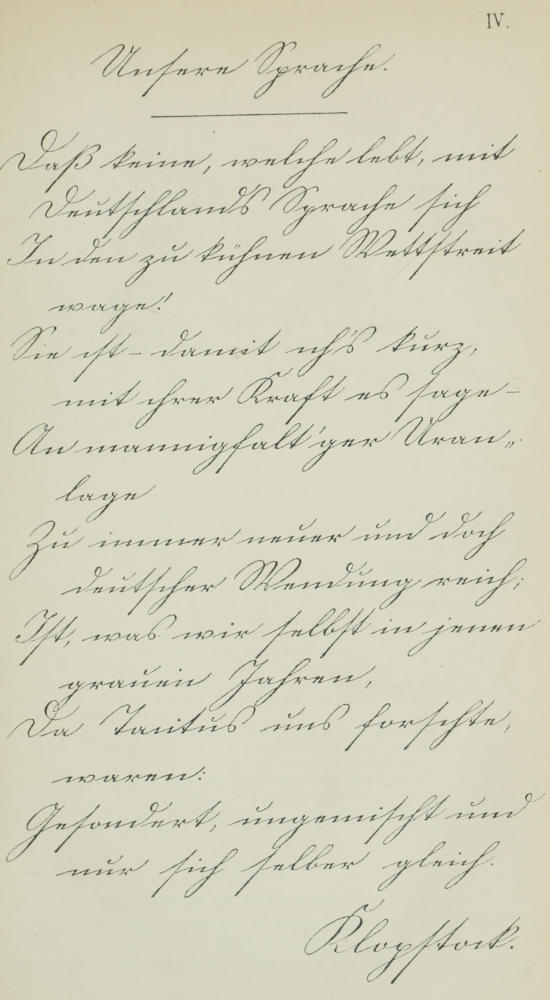 IV.
Unsere Sprache.
Daß keine, welche lebt, mit
Deutschlands Sprache sich
In den zu kühnen Wettstreit
wage!
Sie ist – damit ich's kurz,
mit ihrer Kraft es sage –
An mannigfalt'ger Uran„
lage
Zu immer neuer und doch
deutscher Wendung reich;
Ist, was wir selbst in jenen
grauen Jahren,
Da Tacitus uns forschte,
waren:
Gesondert, ungemischt und
nur sich selber gleich.
Klopstock.